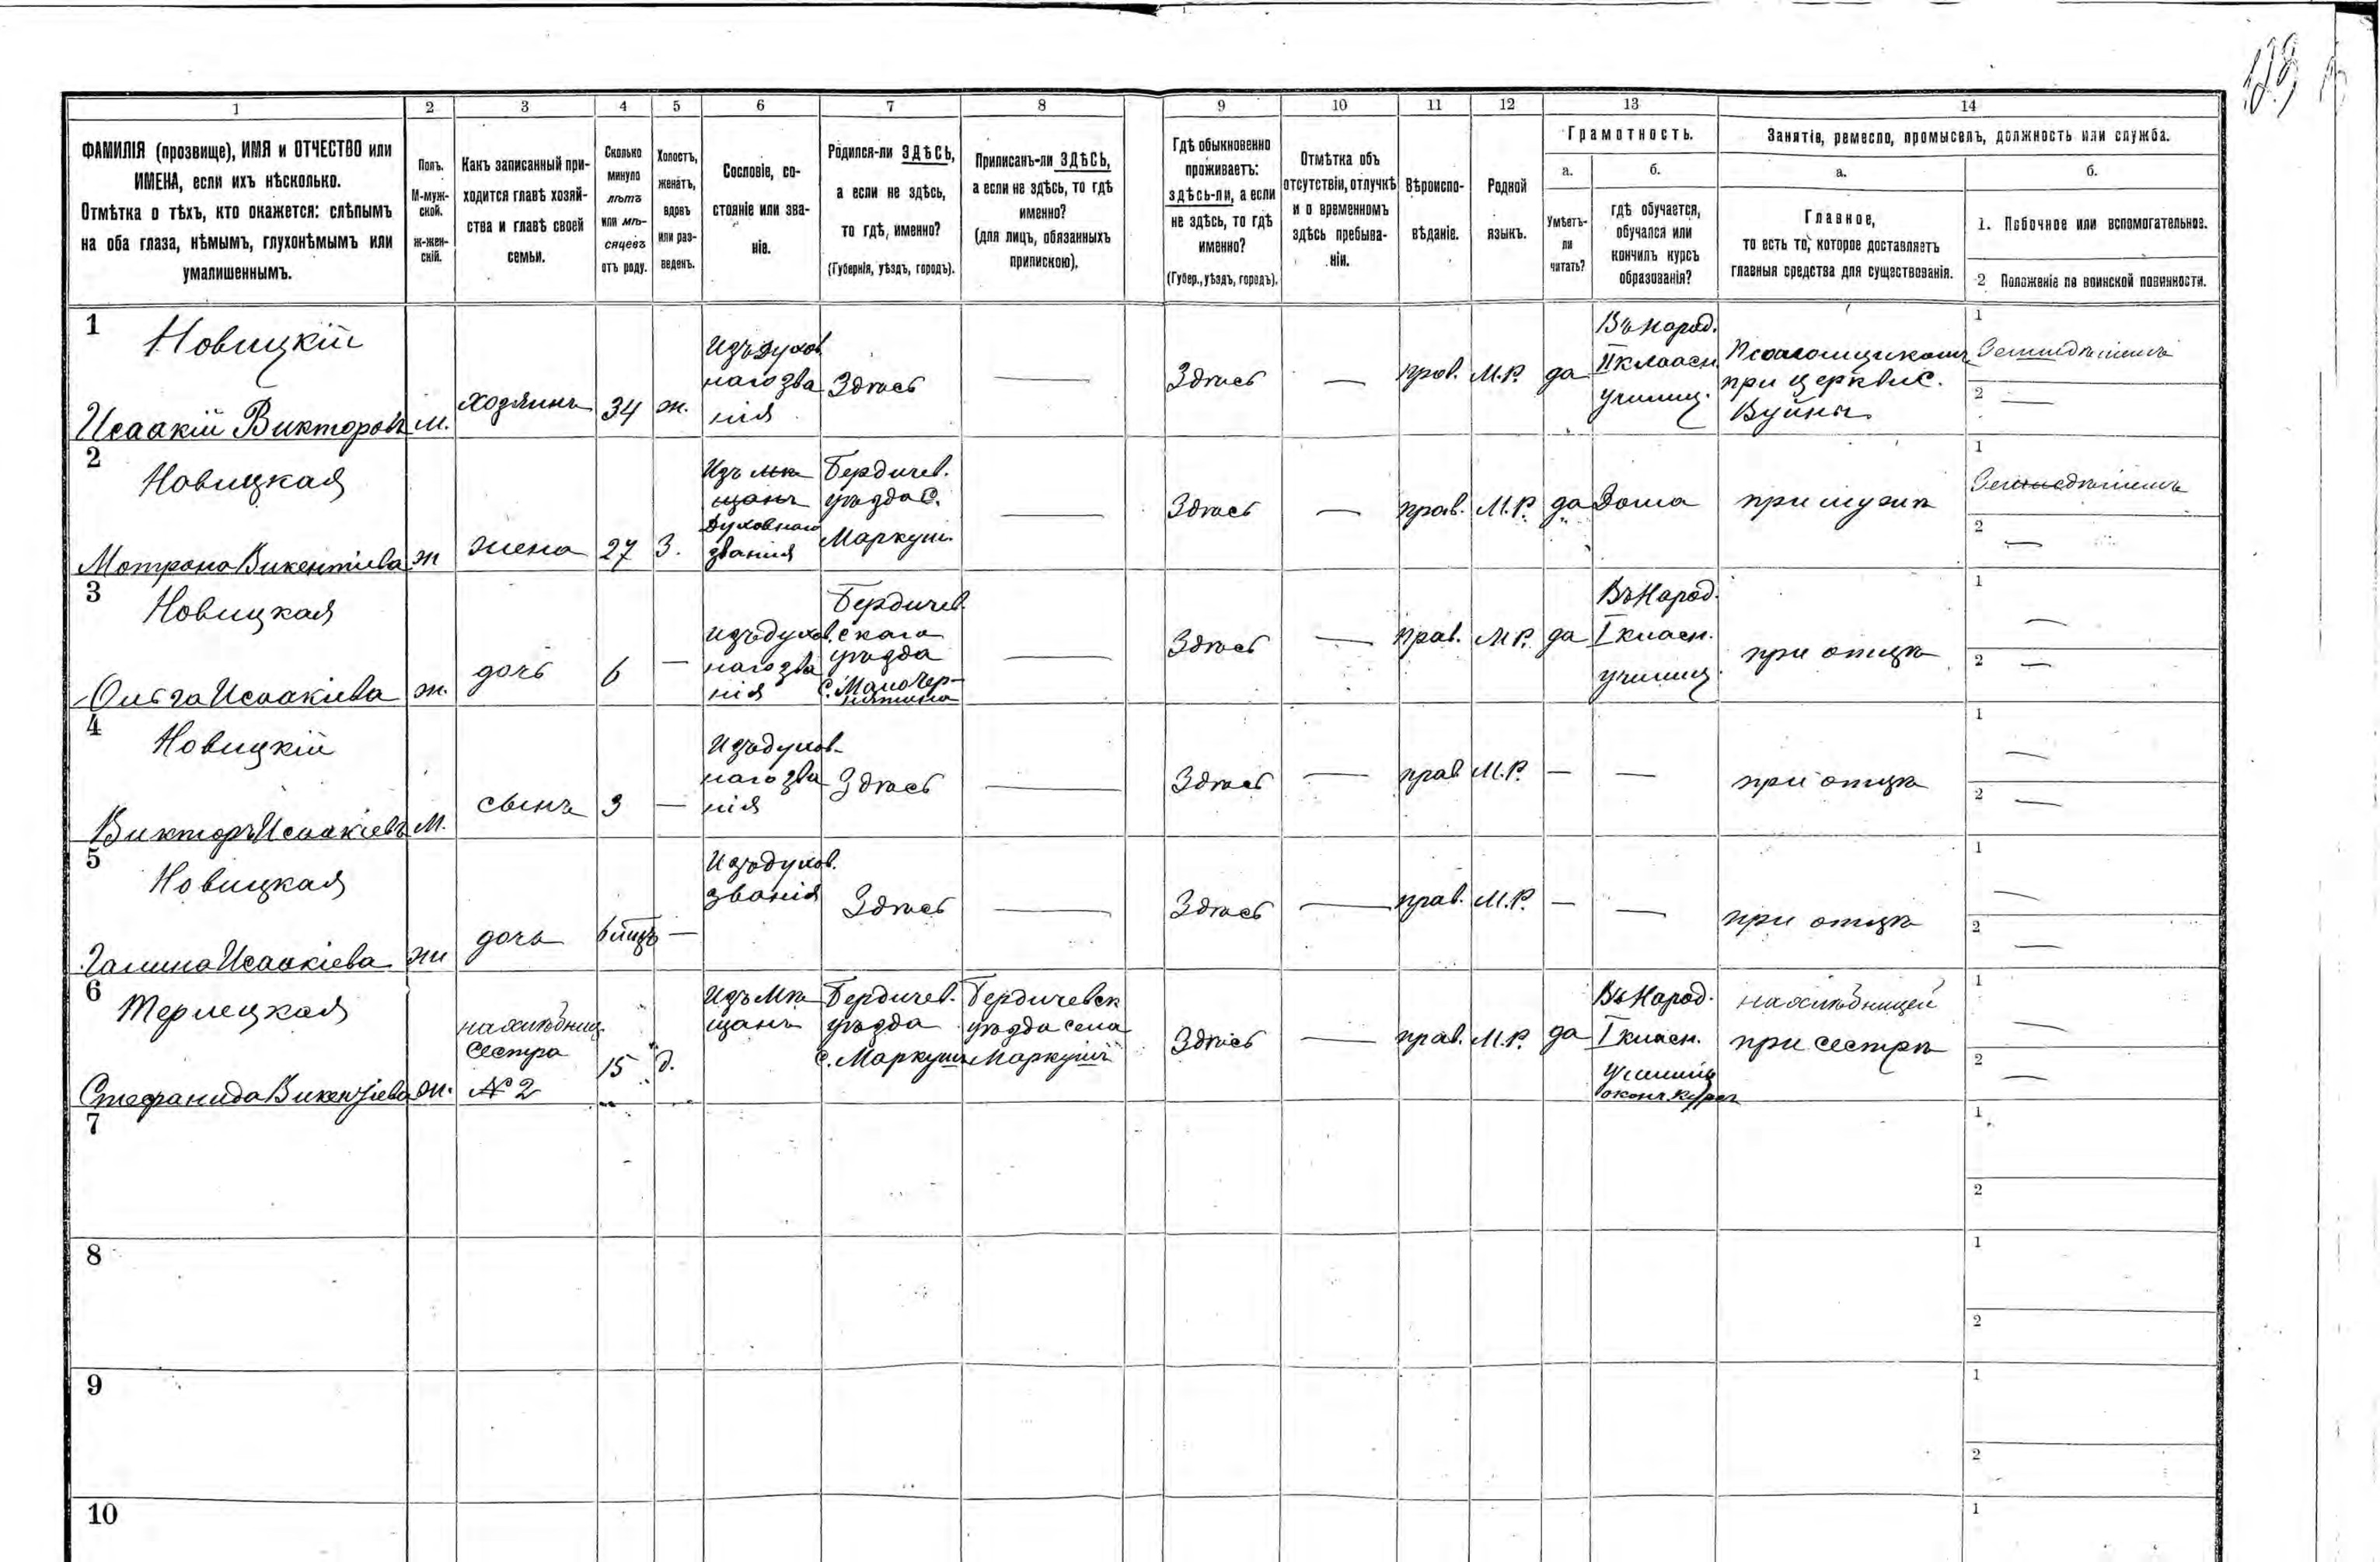 1 2 3 4 5 6 7 8 9 10 11 12 13 14
ФАМИЛІЯ (прозвище), ИМЯ и ОТЧЕСТВО или
ИМЕНА, если ихъ нѣсколько.
Отмѣтка о тѣхъ, кто окажется: слѣпымъ
на оба глаза, нѣмымъ, глухонѣмымъ или
умалишеннымъ.
Полъ.
М-муж-
ской.
ж-жен-
скій.
Какъ записанный при-
ходится главѣ хозяй-
ства и главѣ своей
семьи.
Сколько
минуло
лѣтъ
или мѣ-
сяцевъ
отъ роду.
Холостъ,
женатъ,
вдовъ
или раз-
веденъ.
Сословіе, со-
стояніе или зва-
ніе.
Родился-ли ЗДѢСЬ,
а если не здѣсь,
то гдѣ, именно?
(Губернія, уѣздъ, городъ).
Приписанъ-ли ЗДѢСЬ,
а если не здѣсь, то гдѣ
именно?
(для лицъ, обязанныхъ
припискою).
Гдѣ обыкновенно
проживаетъ:
здѣсь-ли, а если
не здѣсь, то гдѣ
именно?
(Губер., уѣздъ, городъ).
Отмѣтка объ
отсутствіи, отлучкѣ
и о временномъ
здѣсь пребыва-
ніи.
Вѣроиспо-
вѣданіе.
Родной
языкъ.
Грамотность.
а.
Умѣетъ-
ли
читать?
б.
гдѣ обучается,
обучался или
кончилъ курсъ
образованія?
Занятіе, ремесло, промыселъ, должность или служба.
а.
Главное,
то есть то, которое доставляетъ
главныя средства для существованія.
б.
1. Побочное или вспомогательное.
2 Положеніе по воинской повинности.
1
Новицкій
Исаакій Викторовъ
м.
хозяинъ
34
ж.
Изъ духов
наго зва
нія
Здѣсь
—
Здѣсь
—
прав.
М.Р.
да
Въ народ.
II классн.
училищ.
Псаломщикомъ
при церкви с.
Буйны
1
Земледѣліемъ
2
—
2
Новицкая
Мотрона Викентіева
ж
жена
27
З.
Изъ мѣ
щанъ
Духовнаго
званія
Бердичев.
уѣзда с.
Маркуш.
—
Здѣсь
—
прав.
М.Р.
да
Дома
при мужѣ
1
Земледѣліемъ
2
—
3
Новицкая
Ольга Исаакіева
ж.
дочь
6
—
изъ духов.
наго зва
нія
Бердичев.
скаго
уѣзда
с. Малочер-
нятина
—
Здѣсь
—
прав.
М.Р.
да
Въ Народ.
I класн.
училищ.
при отцѣ
1
—
2
—
4
Новицкій
Викторъ Исаакіевъ
М.
сынъ
3
—
Изъ духов-
наго зва
нія
Здѣсь
—
Здѣсь
—
прав
М.Р.
—
—
при отцѣ
1
—
2
—
5
Новицкая
Галина Исаакіева
ж
дочь
6 мцъ
—
Изъ духов.
званія
Здѣсь
—
Здѣсь
—
прав.
М.Р.
—
—
при отцѣ
1
—
2
—
6
Терлецкая
Стефанида Викентіева
ж.
нахлѣбниц.
сестра
№ 2
15
д.
Изъ Мѣ
щанъ
Бердичев.
уѣзда
с. Маркуш
Бердичевск
уѣзда села
Маркушъ
Здѣсь
—
прав.
М.Р.
да
Въ Народ.
I класн.
училищ
оконч. курсъ
нахлѣбницей
при сестрѣ
1
—
2
—
7
1
2
8
1
2
9
1
2
10
1